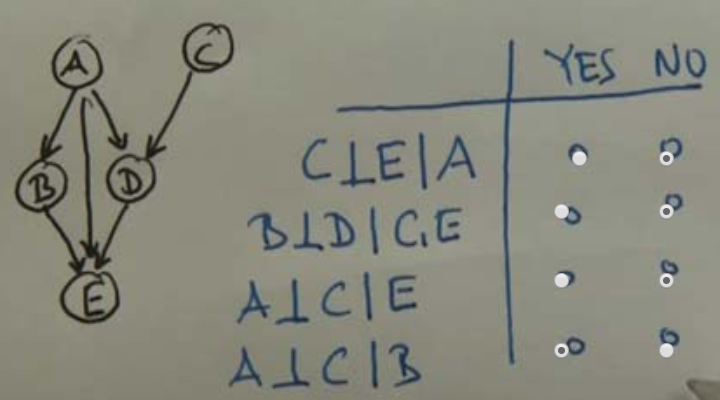 A
C
B
D
E
YES NO
C⊥E|A
B⊥D|C,E
A⊥C|E
A⊥C|B